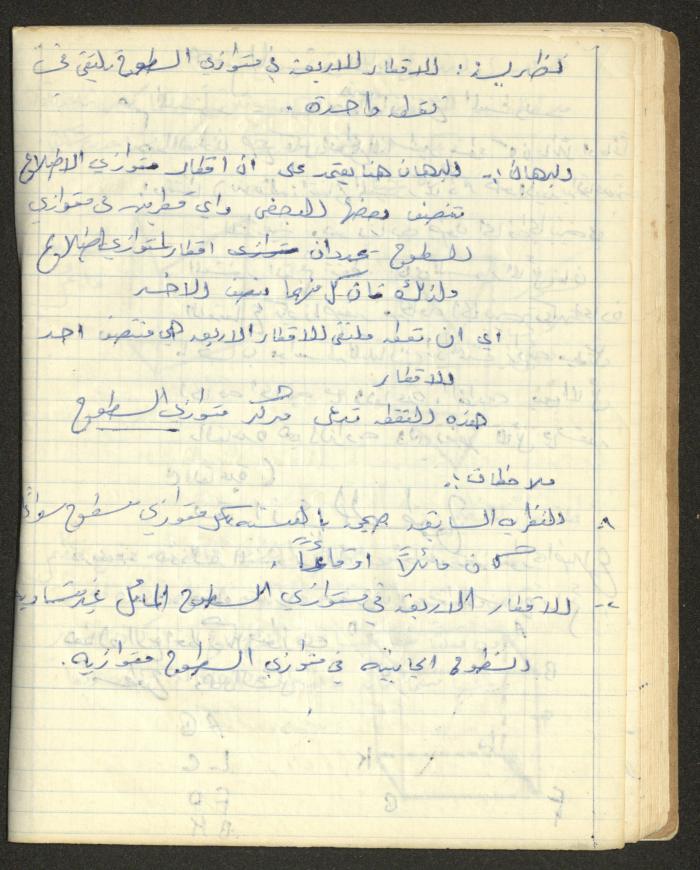 نظرية: الاقطار الاربعة في متوازي السطوح تلتقي في
نقطة واحدة .
البرهان :- البرهان هنا يعتمد على ان اقطار متوازي الاضلاع
تنصف بعضها البعض واي قطرين في متوازي
السطوح يحددان متوازي اقطار لمتوازي اضلاع
ولذلك فان كل منهما ينصف الاخر
اي ان نقطة ملتقى الاقطار الاربعه هي منتصف احد
الاقطار
هذه النقطه تدعى مركز متوازي السطوح
ملاحظات :.
١- النظريه السابقه صحيحه بالنسبه لكل متوازي سطوح سواءً
كان مائلاً او قائماً .
٢- الاقطار الاربعة في متوازي السطوح المائل غير متساويه
السطوح الجانبية في متوازي السطوح متوازيه.